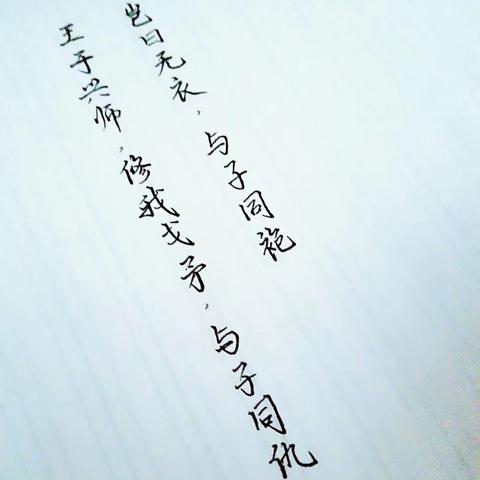 岂曰无衣,与子同袍
王于兴师,修我戈矛,与子同仇